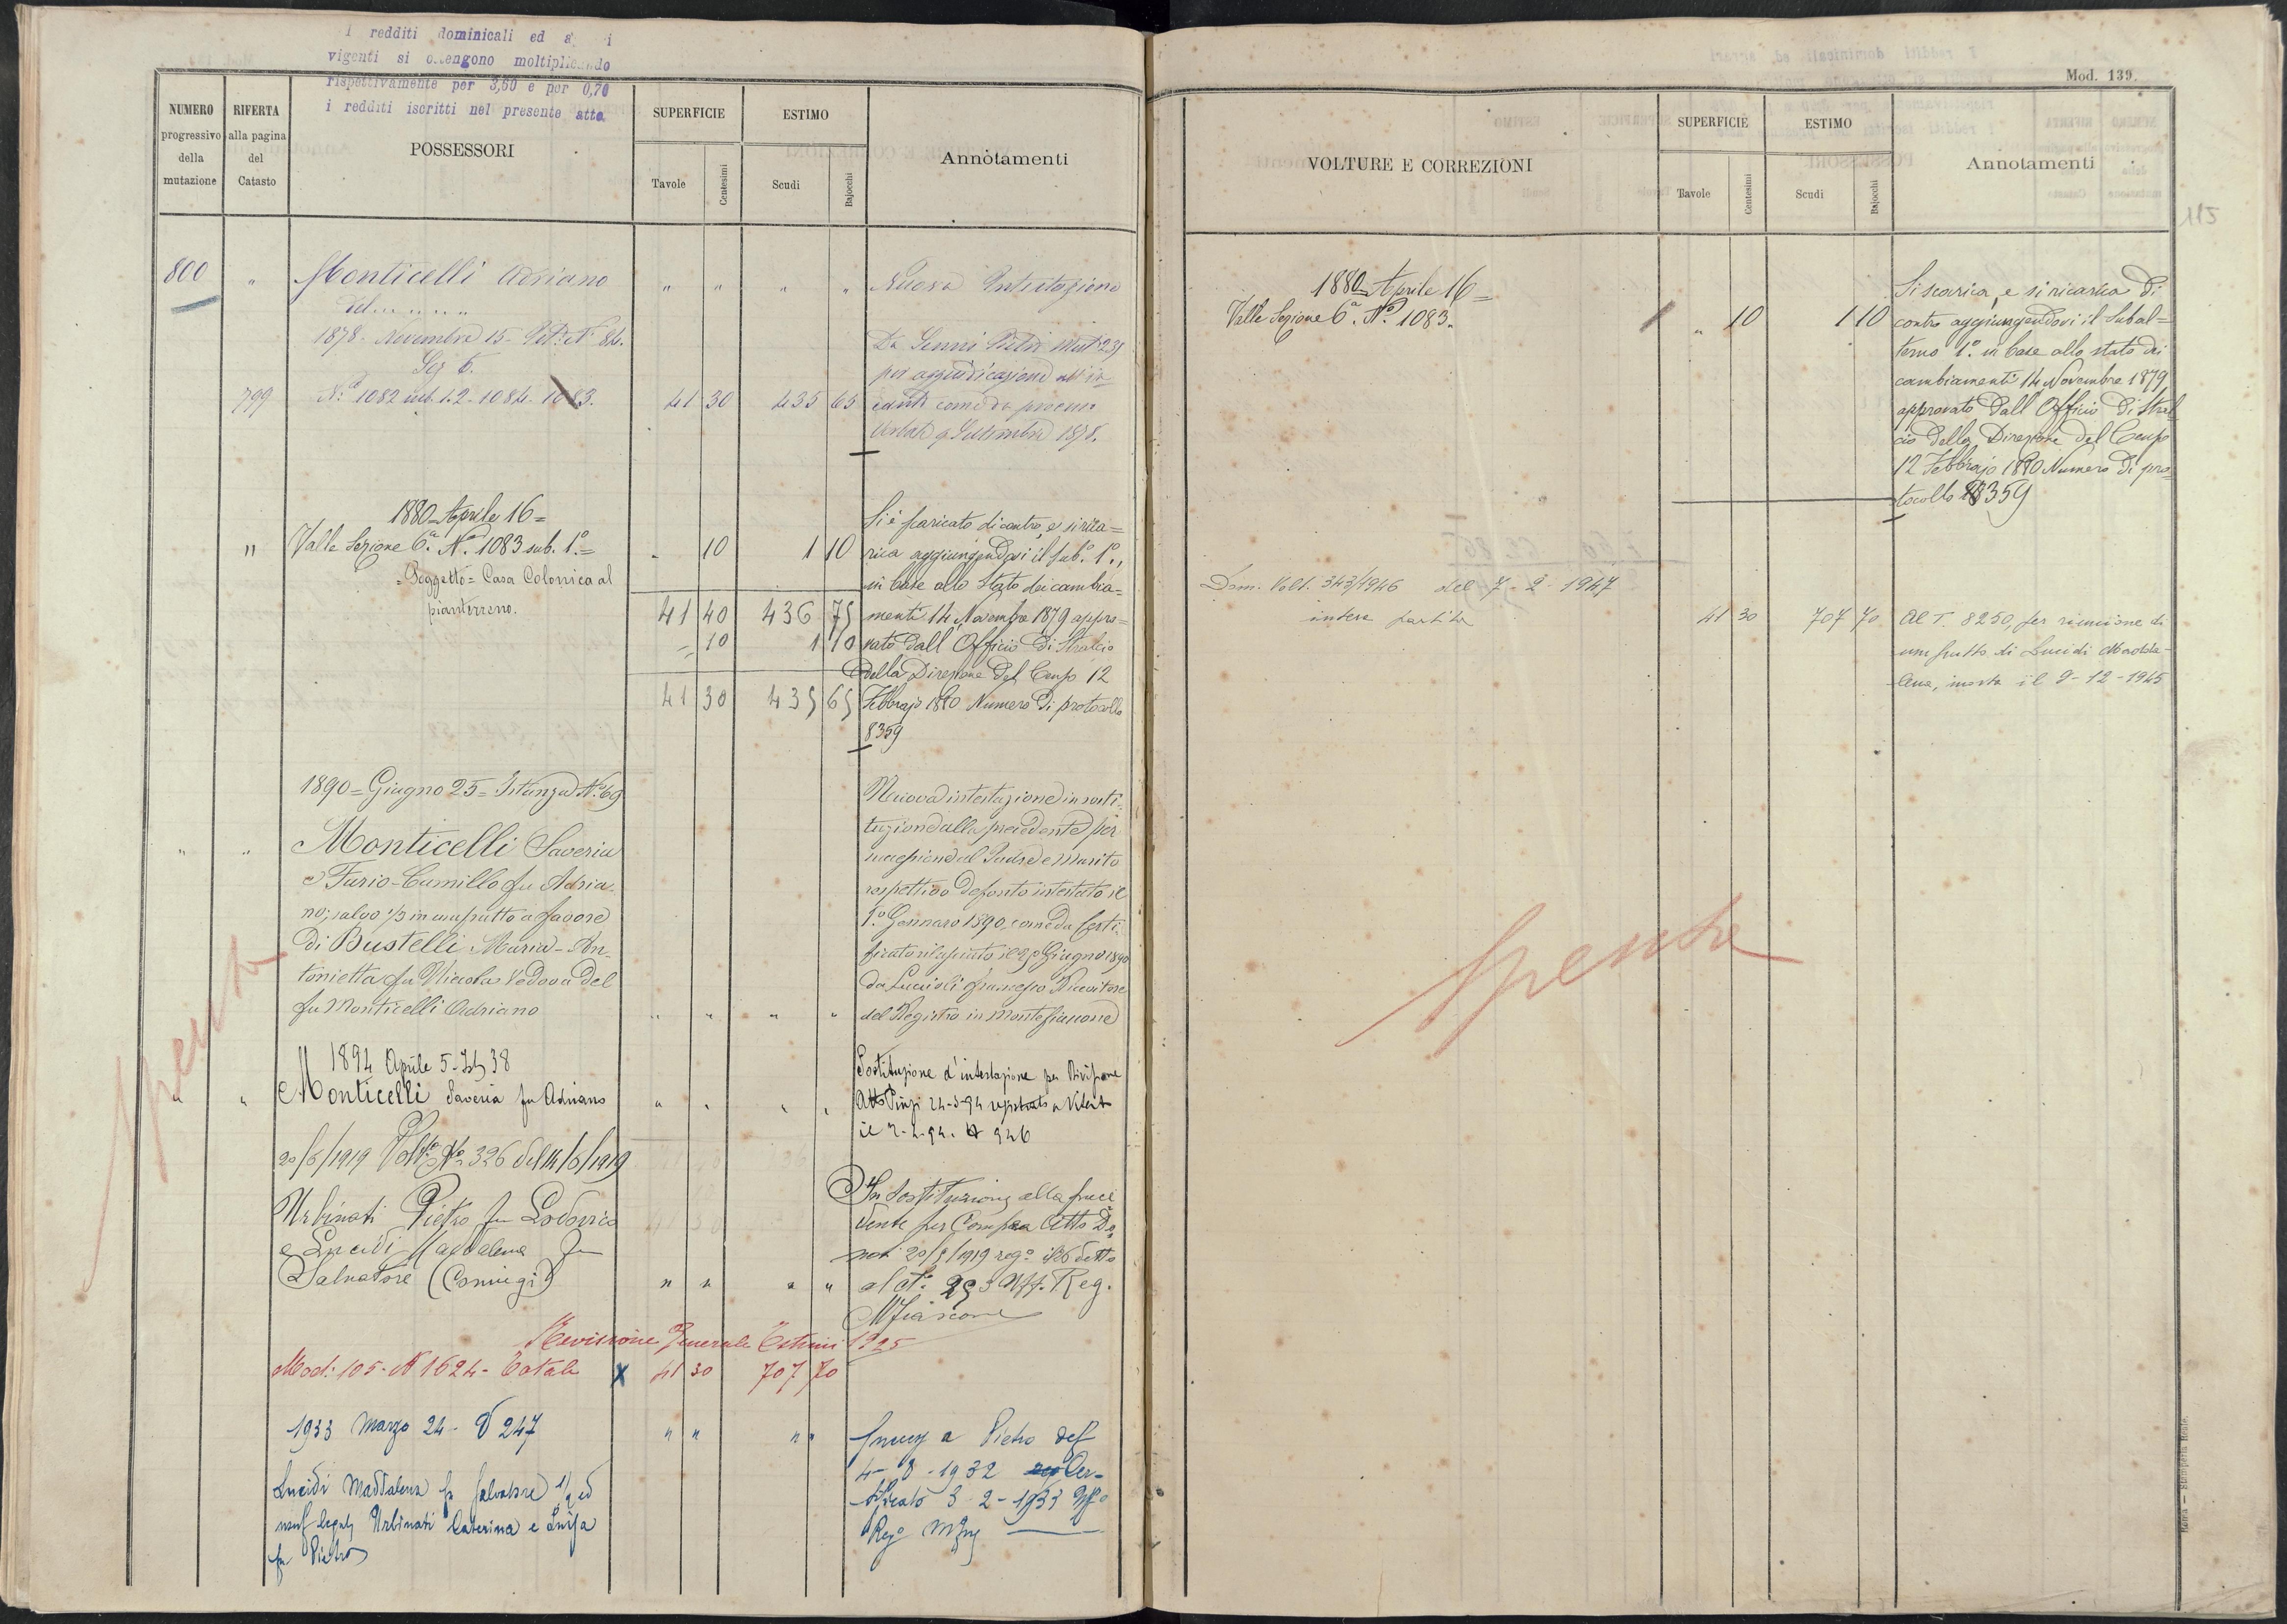 I redditi dominicali ed a i
vigenti si ottengono moltiplicando
rispettivamente per 3,60 e per 0,70
i redditi iscritti nel presente atto.
NUMERO
progressivo
della
mutazione
RIFERTA
alla pagina
del
Catasto
POSSESSORI
SUPERFICIE
Tavole
Centesimi
ESTIMO
Scudi
Bajocchi
Annotamenti
800 " Monticelli Adriano " " " " Nuova Intestazione
del
1878. Novembre 15 - Pet. N. 84.
Sez 6.
Da Pietro Mut. 231
per aggiudicazione
799 N.i 1082 sub. 1.2 - 1084 - 1083. 41 30 435 65
come da
9 Settembre 1878.
1880 - Aprile 16 =
" Valle Sezione 6.a N.o 1083 sub. 1.o = " 10 1 10
= Soggetto = Casa Colonica al
pianterreno.
41 40 436 75
" 10 1 10
41 30 435 65
Si è scaricato di contro, e si rica=
rica aggiungendovi il sub.o 1.o,
in base allo Stato dei cambia=
menti 14 Novembre 1879 appro=
vato dall' Officio di Stralcio
della Direzione del Censo 12
Febbrajo 1880 Numero di protocollo
8359
1890 = Giugno 25 = Istanza N.o 69
" " Monticelli Saveria
e Furio-Camillo fu Adria-
no; salvo 1/3 in usufrutto a favore
di Bustelli Maria-An-
tonietta fu Niccola Vedova del
fu Monticelli Adriano " " " "
Nuova intestazione in sosti-
tuzione alla precedente per
successione al Padre e Marito
rispettivo defonto intestato il
1.o Gennaro 1890, come da Certi-
ficato rilasciato il 25 Giugno 1890
da Luccioli Francesco Ricevitore
del Registro in Montefiascone
1894 Aprile 5 - 38
" " Monticelli Saveria fu Adriano " " " "
Sostituzione d'intestazione per Divisione
Atto Pinzi 24-3-94 registrato a Viterbo
il 2-4-94. N 946
20/6/1919 Volt.a N.o 326 del 14/6/1919
Urbinati Pietro fu Lodovico
e Lucidi Maddalena fu
Salvatore (Coniugi) " " " "
In sostituzione alla prece
dente per Compra Atto
20/5/1919 reg.o il 26 detto
al N.o Uff. Reg.
Mfiascone
Revisione Generale Estimi 1925
Mod: 105 - N 1624 - Totale x 41 30 707 70
1933 Marzo 24 - V 247 " " " "
Lucidi Maddalena fu Salvatore 1/2 ed
usuf. Urbinati Caterina e Luisa
fu Pietro
a Pietro def
4- 8 - 1932 Cer-
tificato 3 - 2 - 1933 Uff.o
Reg.o
spenta
Mod. 139.
VOLTURE E CORREZIONI
SUPERFICIE
Tavole
Centesimi
ESTIMO
Scudi
Bajocchi
Annotamenti
115
1880 - Aprile 16 =
Valle Sezione 6.a N.o 1083. " 10 1 10
Si scarica, e si ricarica di
contro aggiungendovi il subal=
terno 1.o in base allo stato dei
cambiamenti 14 Novembre 1879,
approvato dall' Officio di Stral
cio della Direzione del Censo
12 Febbrajo 1880 Numero di pro
tocollo 8359
Dom. Volt. 343/1946 del 7 - 2 - 1947
intera partita 41 30 707 70
Al T. 8250, per riunione di
usufrutto di Lucidi Madda-
lena, morta il 9-12-1945
Spenta
Roma - Stamperia Reale.